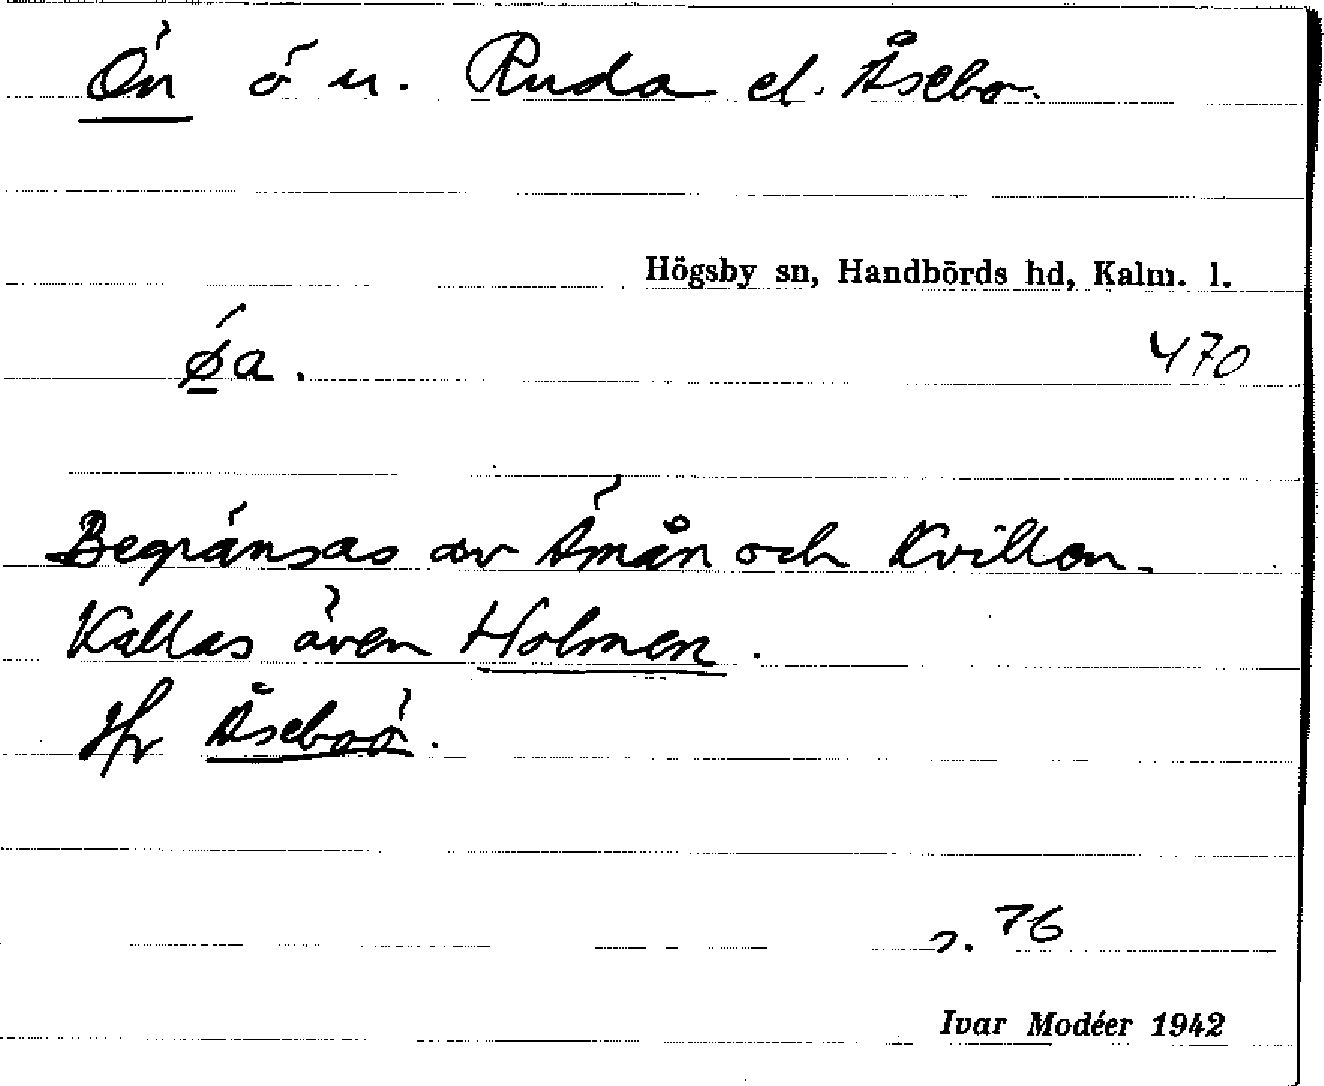 Ön ö u. Ruda el. Åsebo.
Högsby sn, Handbörds hd, Kalm. l.
ǿ̱a.
470
Begränsas av Ämån och Kvillen.
Kallas även Holmen.
Jfr Åseboö.
s. 76
Ivar Modéer 1942